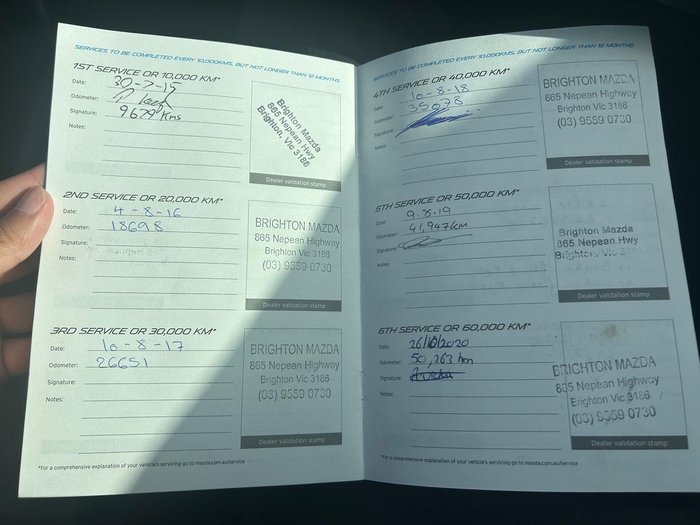 SERVICES TO BE COMPLETED EVERY 10,000KMS, BUT NOT LONGER THAN 12 MONTHS
1ST SERVICE OR 10,000 KM*
Date: 30-7-15
Odometer:
Signature: 9679 Kms
Notes:
Brighton Mazda
865 Nepean Hwy
Brighton, Vic 3186
Dealer validation stamp
2ND SERVICE OR 20,000 KM*
Date: 4-8-16
Odometer: 18698
Signature:
Notes:
BRIGHTON MAZDA
865 Nepean Highway
Brighton Vic 3186
(03) 9559 0730
Dealer validation stamp
3RD SERVICE OR 30,000 KM*
Date: 10-8-17
Odometer: 26651
Signature:
Notes:
BRIGHTON MAZDA
865 Nepean Highway
Brighton Vic 3186
(03) 9559 0730
Dealer validation stamp
*For a comprehensive explanation of your vehicle's servicing go to mazda.com.au/service
SERVICES TO BE COMPLETED EVERY 10,000KMS, BUT NOT LONGER THAN 12 MONTHS
4TH SERVICE OR 40,000 KM*
Date: 10-8-18
Odometer: 35078
Signature:
Notes:
BRIGHTON MAZDA
865 Nepean Highway
Brighton Vic 3186
(03) 9559 0730
Dealer validation stamp
5TH SERVICE OR 50,000 KM*
Date: 9.8.19
Odometer: 41,947km
Signature:
Notes:
Brighton Mazda
865 Nepean Hwy
Brighton, Vic 3186
Dealer validation stamp
6TH SERVICE OR 60,000 KM*
Date: 26/10/2020
Odometer: 50,263 km
Signature:
Notes:
BRIGHTON MAZDA
865 Nepean Highway
Brighton Vic 3186
(03) 9559 0730
Dealer validation stamp
*For a comprehensive explanation of your vehicle's servicing go to mazda.com.au/service